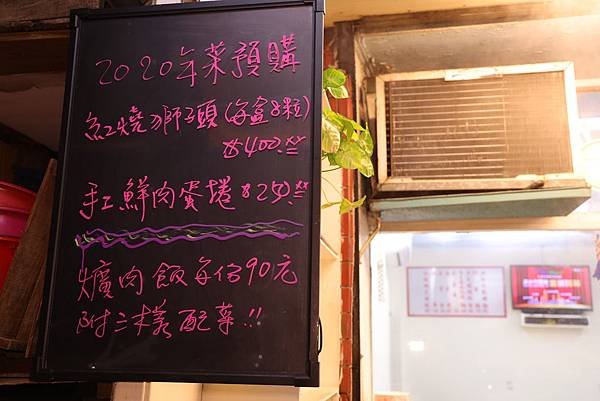 2020年菜預購
紅燒獅子頭(每盒8粒)
$400.
手工鮮肉蛋捲$250.
爌肉飯每份90元
附三樣配菜!!